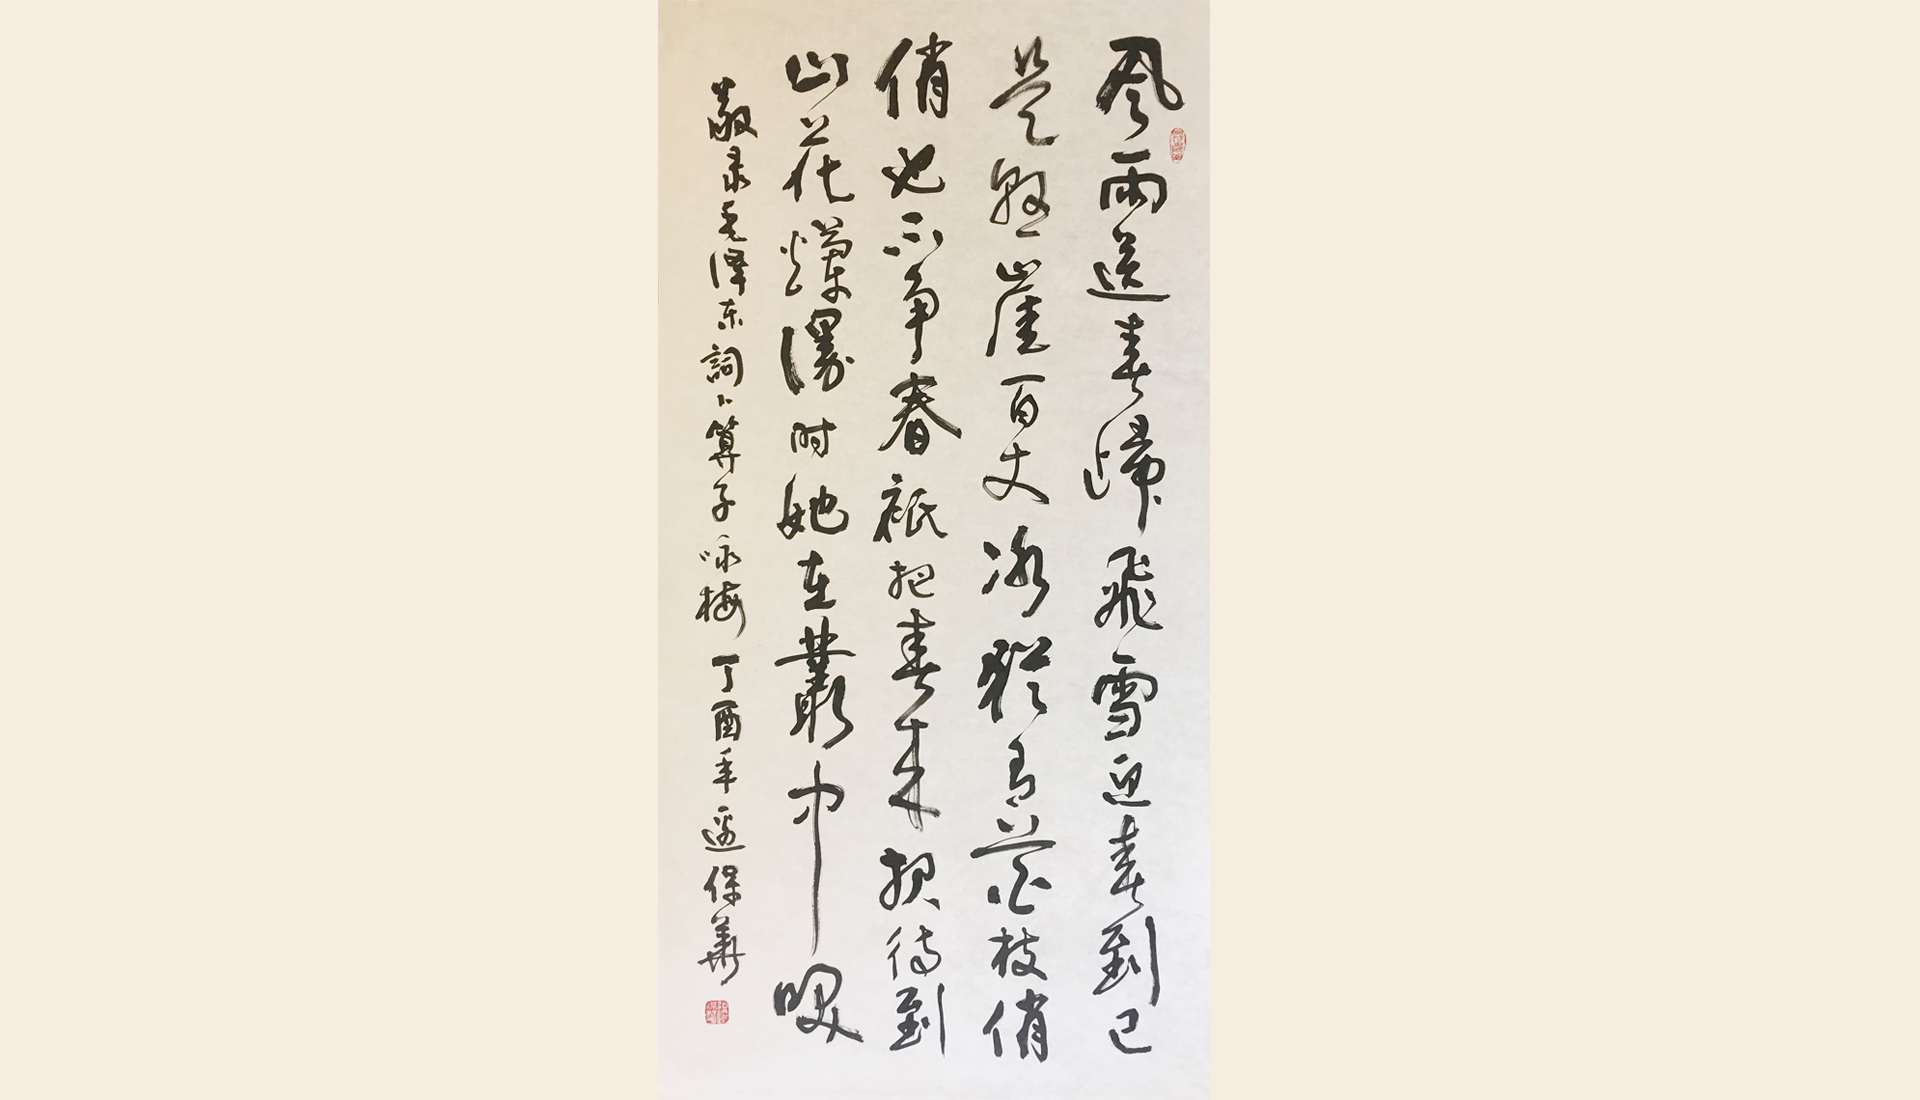 風雨送春歸飛雪迎春到已
是懸崖百丈冰猶有花枝俏
俏也不争春衹把春来报待到
山花爛漫时她在叢中咲
敬录毛泽东詞卜算子咏梅 丁酉年邊保華